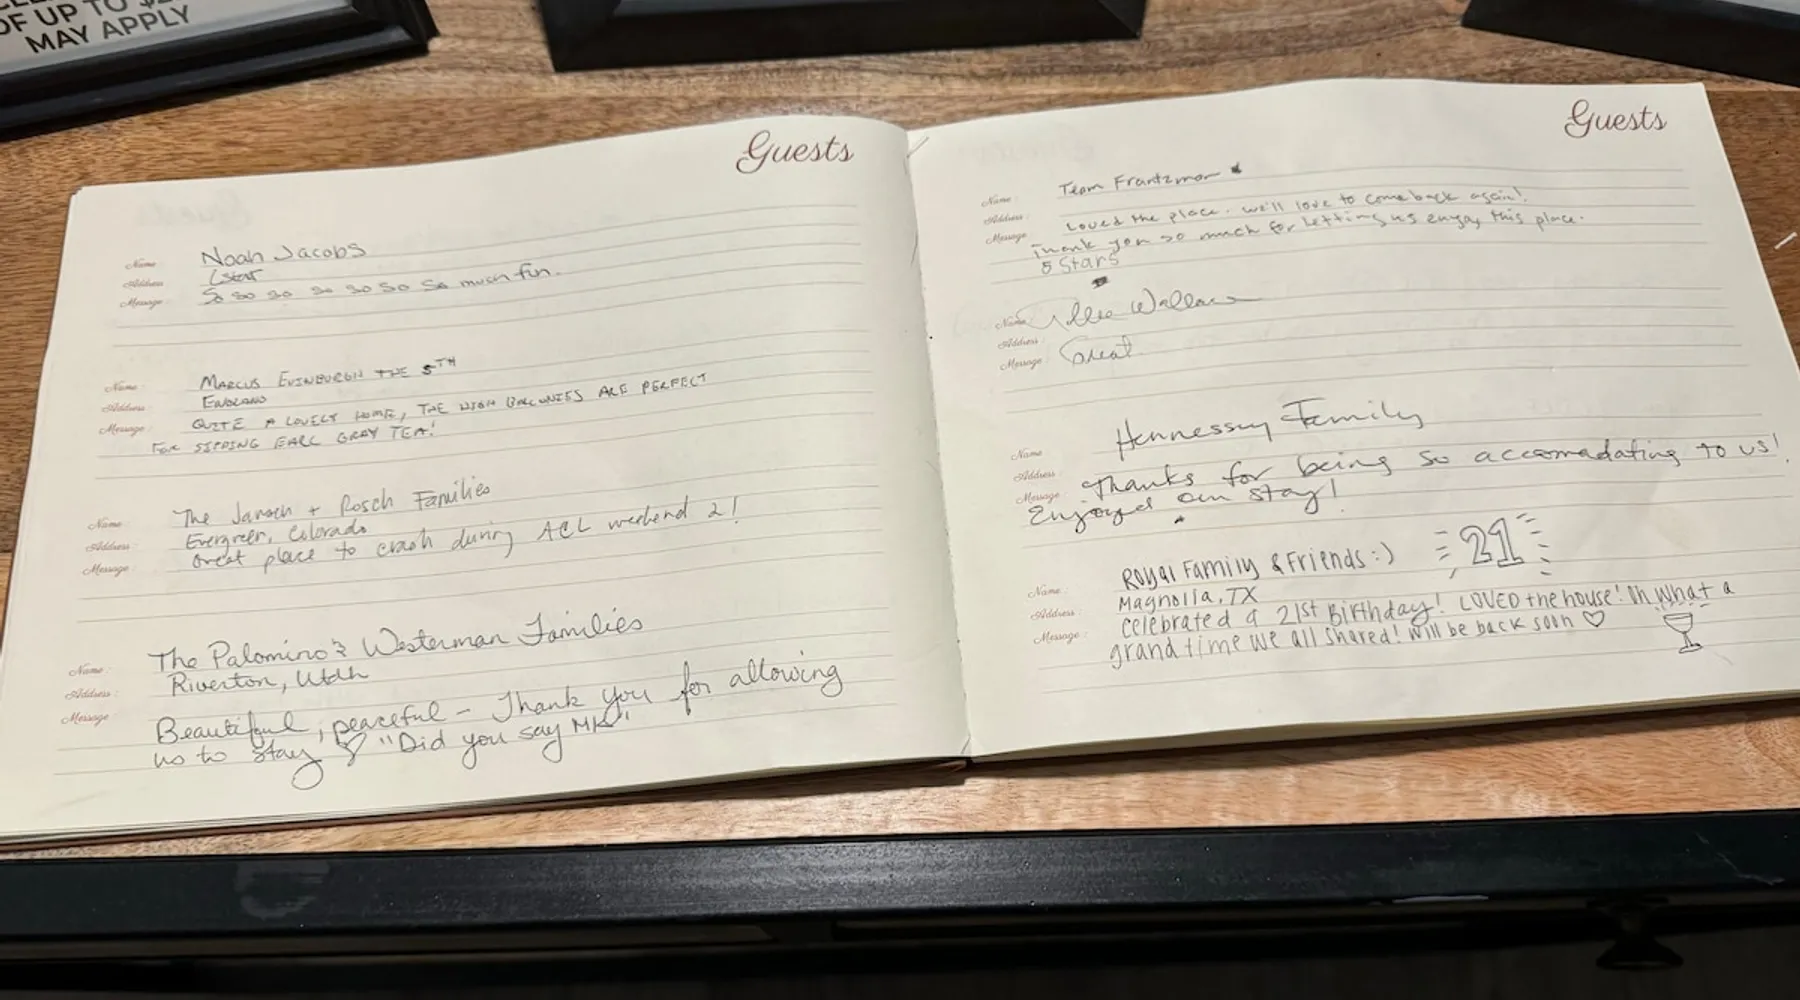 OF UP TO $
MAY APPLY
Guests
Name Noah Jacobs
Address
Message So so so so so so so much fun.
Name MARCUS EVINBURGH THE 5TH
Address ENGLAND
Message QUITE A LOVELY HOME, THE HIGH BALCONIES ARE PERFECT
FOR SIPPING EARL GRAY TEA!
Name The + Rosch Families
Address Evergreen, Colorado
Message Great place to crash during ACL weekend 2!
Name The Palomino & Westerman Families
Address Riverton, Utah
Message Beautiful, peaceful – Thank you for allowing
us to stay ♡ "Did you say MK"
Guests
Name Team Frantzman
Address Loved the place. we'll love to come back again!
Message Thank you so much for letting us enjoy this place.
5 Stars
Name Wallace
Address
Message Great
Name Hennessy Family
Address Thanks for being so accomadating to us!
Message Enjoyed our stay!
21
Name Royal Family & Friends :)
Address Magnolia, TX
Message celebrated a 21st Birthday! LOVED the house! Oh what a
grand time we all shared! Will be back soon ♡